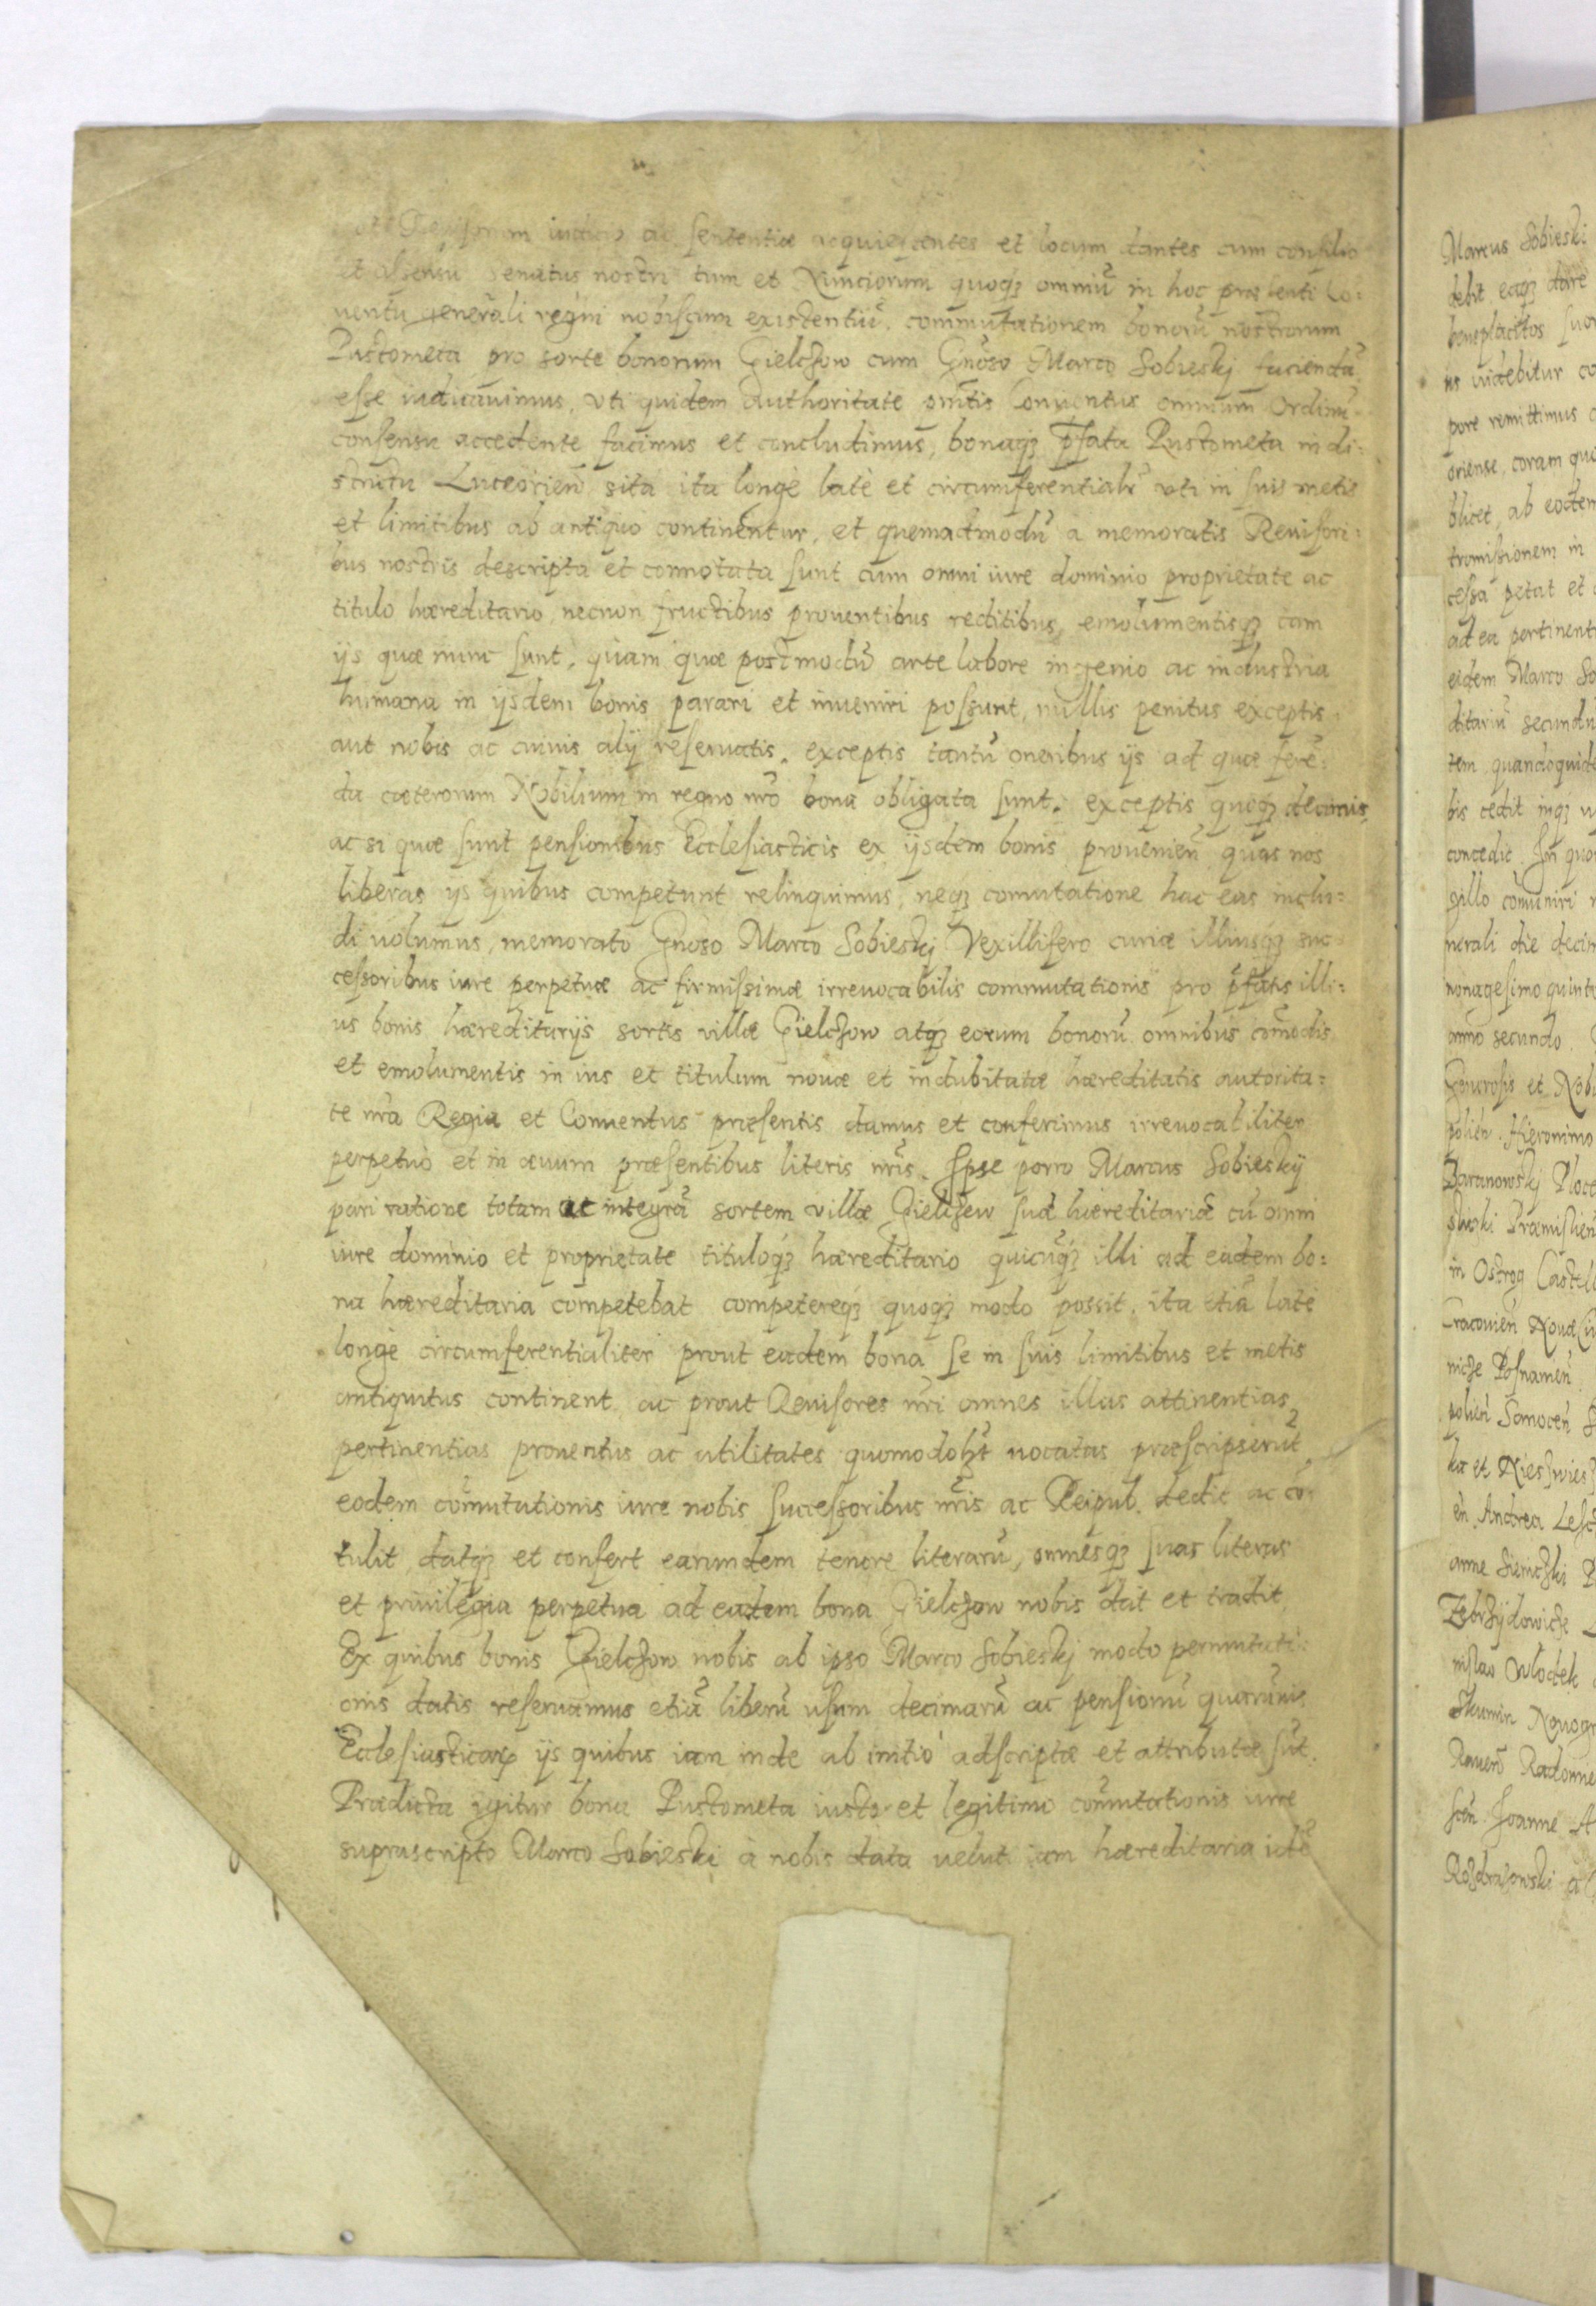 Revisorum iudicio ac sententiæ acquiescentes et locum dantes cum consilio
et assensu senatus nostri tum et Nunciorum quoqȝ omniũ in hoc præsenti Co:
nuentu generali regni nobiscum existentiũ. commutationem bonorũ nostrorum
Pustometa pro sorte bonorum Gielczow cum Gñoso Marco Sobieskj faciendã
esse iudicauimus, vti quidem authoritate pñtis Conuentus omnium Ordinũ
consensu accedente facimus et concludimus, bonaqȝ p̃fata Pustometa in di:
strictu Luceorieñ sita ita longè latè et circumferentialr̃ vti in suis metis
et limitibus ab antiquo continentur, et quemadmodũ a memoratis Reuisori:
bus nostris descripta et connotata sunt cum omni iure dominio proprietate ac
titulo hæreditario, necnon fructibus prouentibus reditibus, emolumentisqȝ tam
ijs quæ nunc sunt, quam quæ postmodũ arte labore ingenio ac industria
humana in ijsdem bonis parari et inueniri possunt, nullis penitus exceptis
aut nobis ac cuiuis alij reseruatis. exceptis tantũ oneribus ijs ad quæ ferẽ:
da cæterorum Nobilium in regno nr̃o bona obligata sunt. exceptis quoqȝ decimis
ac si quæ sunt pensionibus Ecclesiasticis ex ijsdem bonis prouenieñ quas nos
liberas ijs quibus competunt relinquimus, neqȝ comutatione hac eas inclu:
di uolumus, memorato Gñoso Marco Sobieskj Vexillifero curiæ illiusqȝ suc
cessoribus iure perpetuæ ac firmissimæ irreuocabilis commutationis pro p̃fatis illi:
us bonis hæreditarijs sortis villæ Gielczow atqȝ eorum bonorũ omnibus com̃odis
et emolumentis in ius et titulum nouæ et indubitatæ hæreditatis autorita:
te nr̃a Regia et Conuentus præsentis damus et conferimus irreuocabiliter
perpetuò et in æuum præsentibus literis nr̃is. Ipse porro Marcus Sobieskij
pari ratione totam et integrã sortem villæ Gielczew suã hæreditariã cũ omni
iure dominio et proprietate tituloqȝ hæreditario quicũqȝ illi ad eadem bo:
na hæreditaria competebat competereqȝ quoqȝ modo possit, ita etiã latè
longè circumferentialiter prout eadem bona se in suis limitibus et metis
antiquitus continent, ac prout Reuisores nr̃i omnes illas attinentias
pertinentias prouentus ac utilitates quomodolȝt uocatas præscripserũt,
eodem com̃utationis iure nobis successoribus nr̃is ac Reipub. dedit ac cõ:
tulit, datqȝ et confert earundem tenore literarũ, omnesqȝ suas literas
et priuilegia perpetua ad eadem bona Gielczow nobis dat et tradit,
Ex quibus bonis Gielczow nobis ab ipso Marco Sobieskj modo permutati:
onis datis reseruamus etiã liberũ usum decimarũ ac pensionũ quarũuis
Ecclesiasticarum ijs quibus iam inde ab initio adscriptæ et attributæ sũt.
Prædicta igitur bona Pustometa iusto et legitimo com̃utationis iure
suprascripto Marco Sobieski à nobis data uelut iam hæreditaria idẽ
Marcus Sobieski
debit, eaqȝ dare
beneplacitos suo
us uidebitur co
pore remittimus
oriense, coram quo
blicet, ab eodem
tromissionem in
cessa petat et
ad ea pertinenti
eidem Marco So
ditariũ secundũ
tem, quandoquide
bis cedit inqȝ
concedit. In quo
gillo com̃uniri
nerali die decim
nonagesimo quinto
anno secundo.
Generosis et Nobi
polień. Hieronimo
Baranowskj Ploce
Præmislień
in Ostrog Castell
Cracouień
Posnanień
polień Sanocen
en. Andrea Lesc
anne Sienczki
Zebrzydowicze
nislao Wlodek
Skumin Nouogr
Rauen Radomie
Joanne